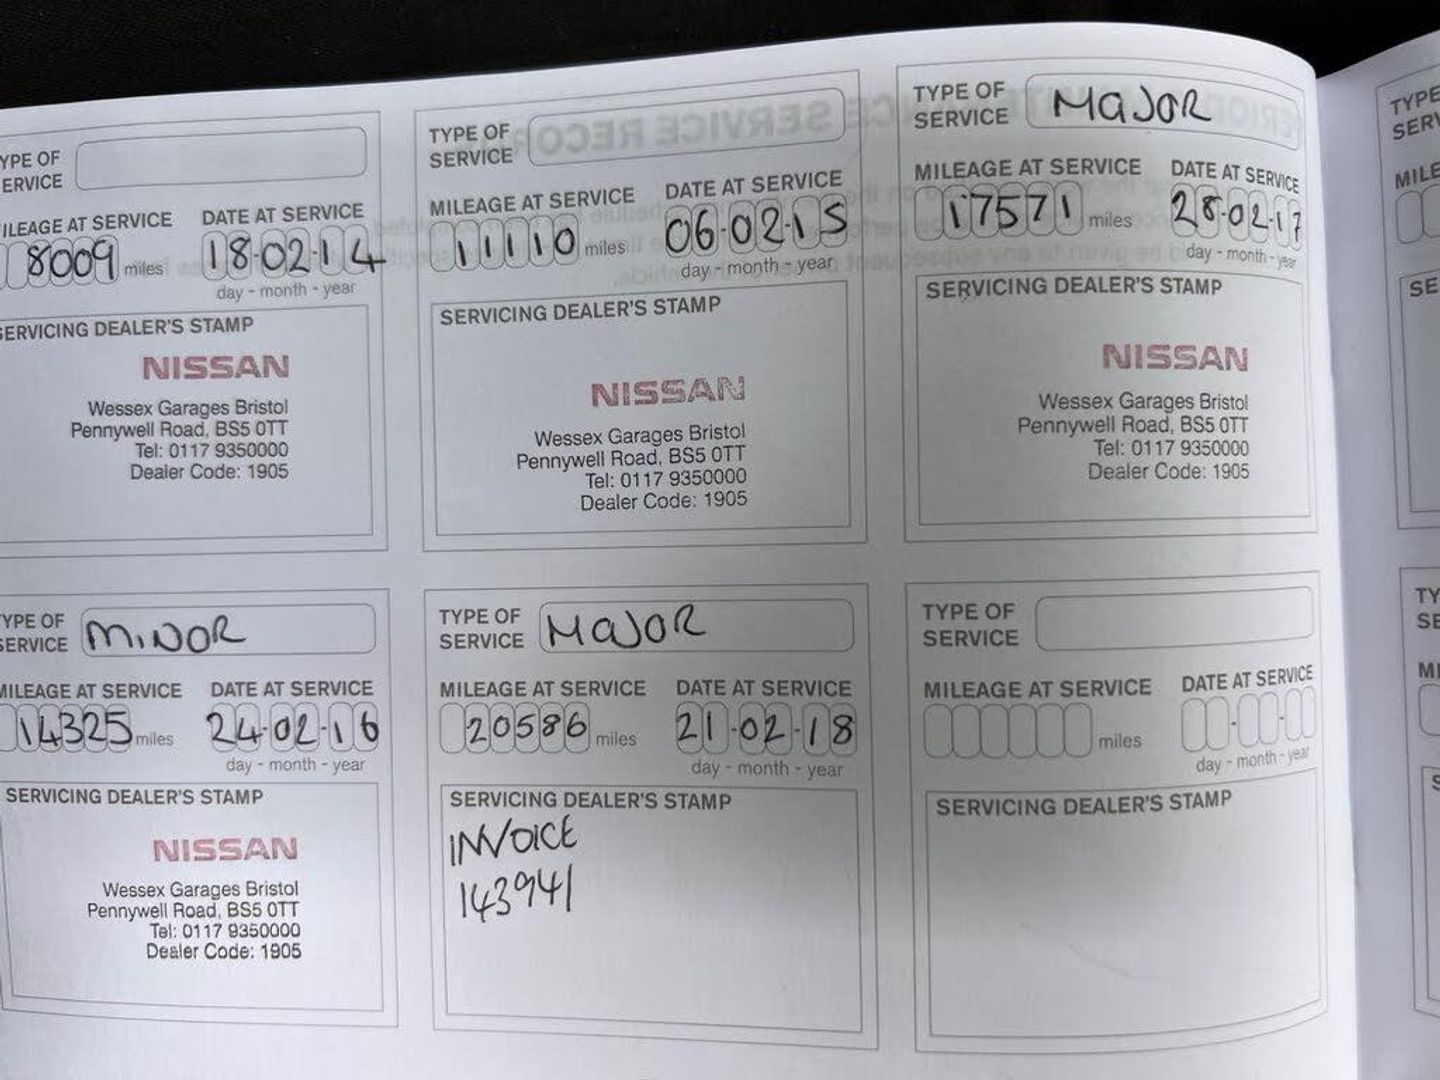 TYPE OF
SERVICE
MILEAGE AT SERVICE DATE AT SERVICE
8009 miles 18-02-14
day - month - year
SERVICING DEALER'S STAMP
NISSAN
Wessex Garages Bristol
Pennywell Road, BS5 0TT
Tel: 0117 9350000
Dealer Code: 1905
TYPE OF
SERVICE
MILEAGE AT SERVICE DATE AT SERVICE
11110 miles 06-02-15
day - month - year
SERVICING DEALER'S STAMP
NISSAN
Wessex Garages Bristol
Pennywell Road, BS5 0TT
Tel: 0117 9350000
Dealer Code: 1905
TYPE OF
SERVICE MAJOR
MILEAGE AT SERVICE DATE AT SERVICE
17571 miles 28-02-17
day - month - year
SERVICING DEALER'S STAMP
NISSAN
Wessex Garages Bristol
Pennywell Road, BS5 0TT
Tel: 0117 9350000
Dealer Code: 1905
TYPE OF
SERVICE MINOR
MILEAGE AT SERVICE DATE AT SERVICE
14325 miles 24-02-16
day - month - year
SERVICING DEALER'S STAMP
NISSAN
Wessex Garages Bristol
Pennywell Road, BS5 0TT
Tel: 0117 9350000
Dealer Code: 1905
TYPE OF
SERVICE MAJOR
MILEAGE AT SERVICE DATE AT SERVICE
20586 miles 21-02-18
day - month - year
SERVICING DEALER'S STAMP
INVOICE
143941
TYPE OF
SERVICE
MILEAGE AT SERVICE DATE AT SERVICE
miles
day - month - year
SERVICING DEALER'S STAMP